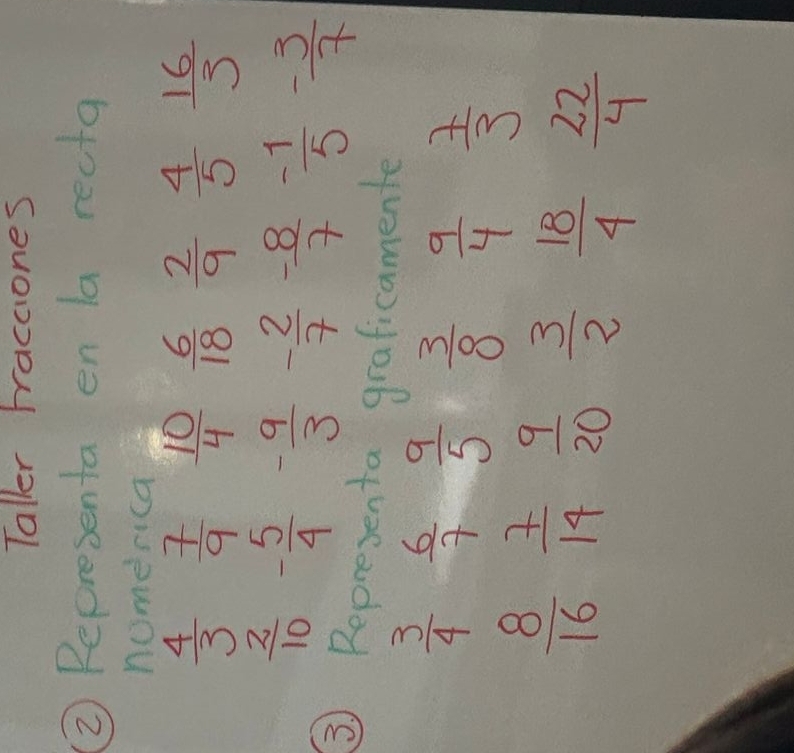 Taller fracciones
② Representa en la recta
numérica
4/3 7/9 10/4 6/18 2/9 4/5 16/3
2/10 -5/4 -9/3 -2/7 -8/7 -1/5 -3/7
③. Representa graficamente
3/4 6/7 9/5 3/8 9/4 7/3
8/16 7/14 9/20 3/2 18/4 22/4